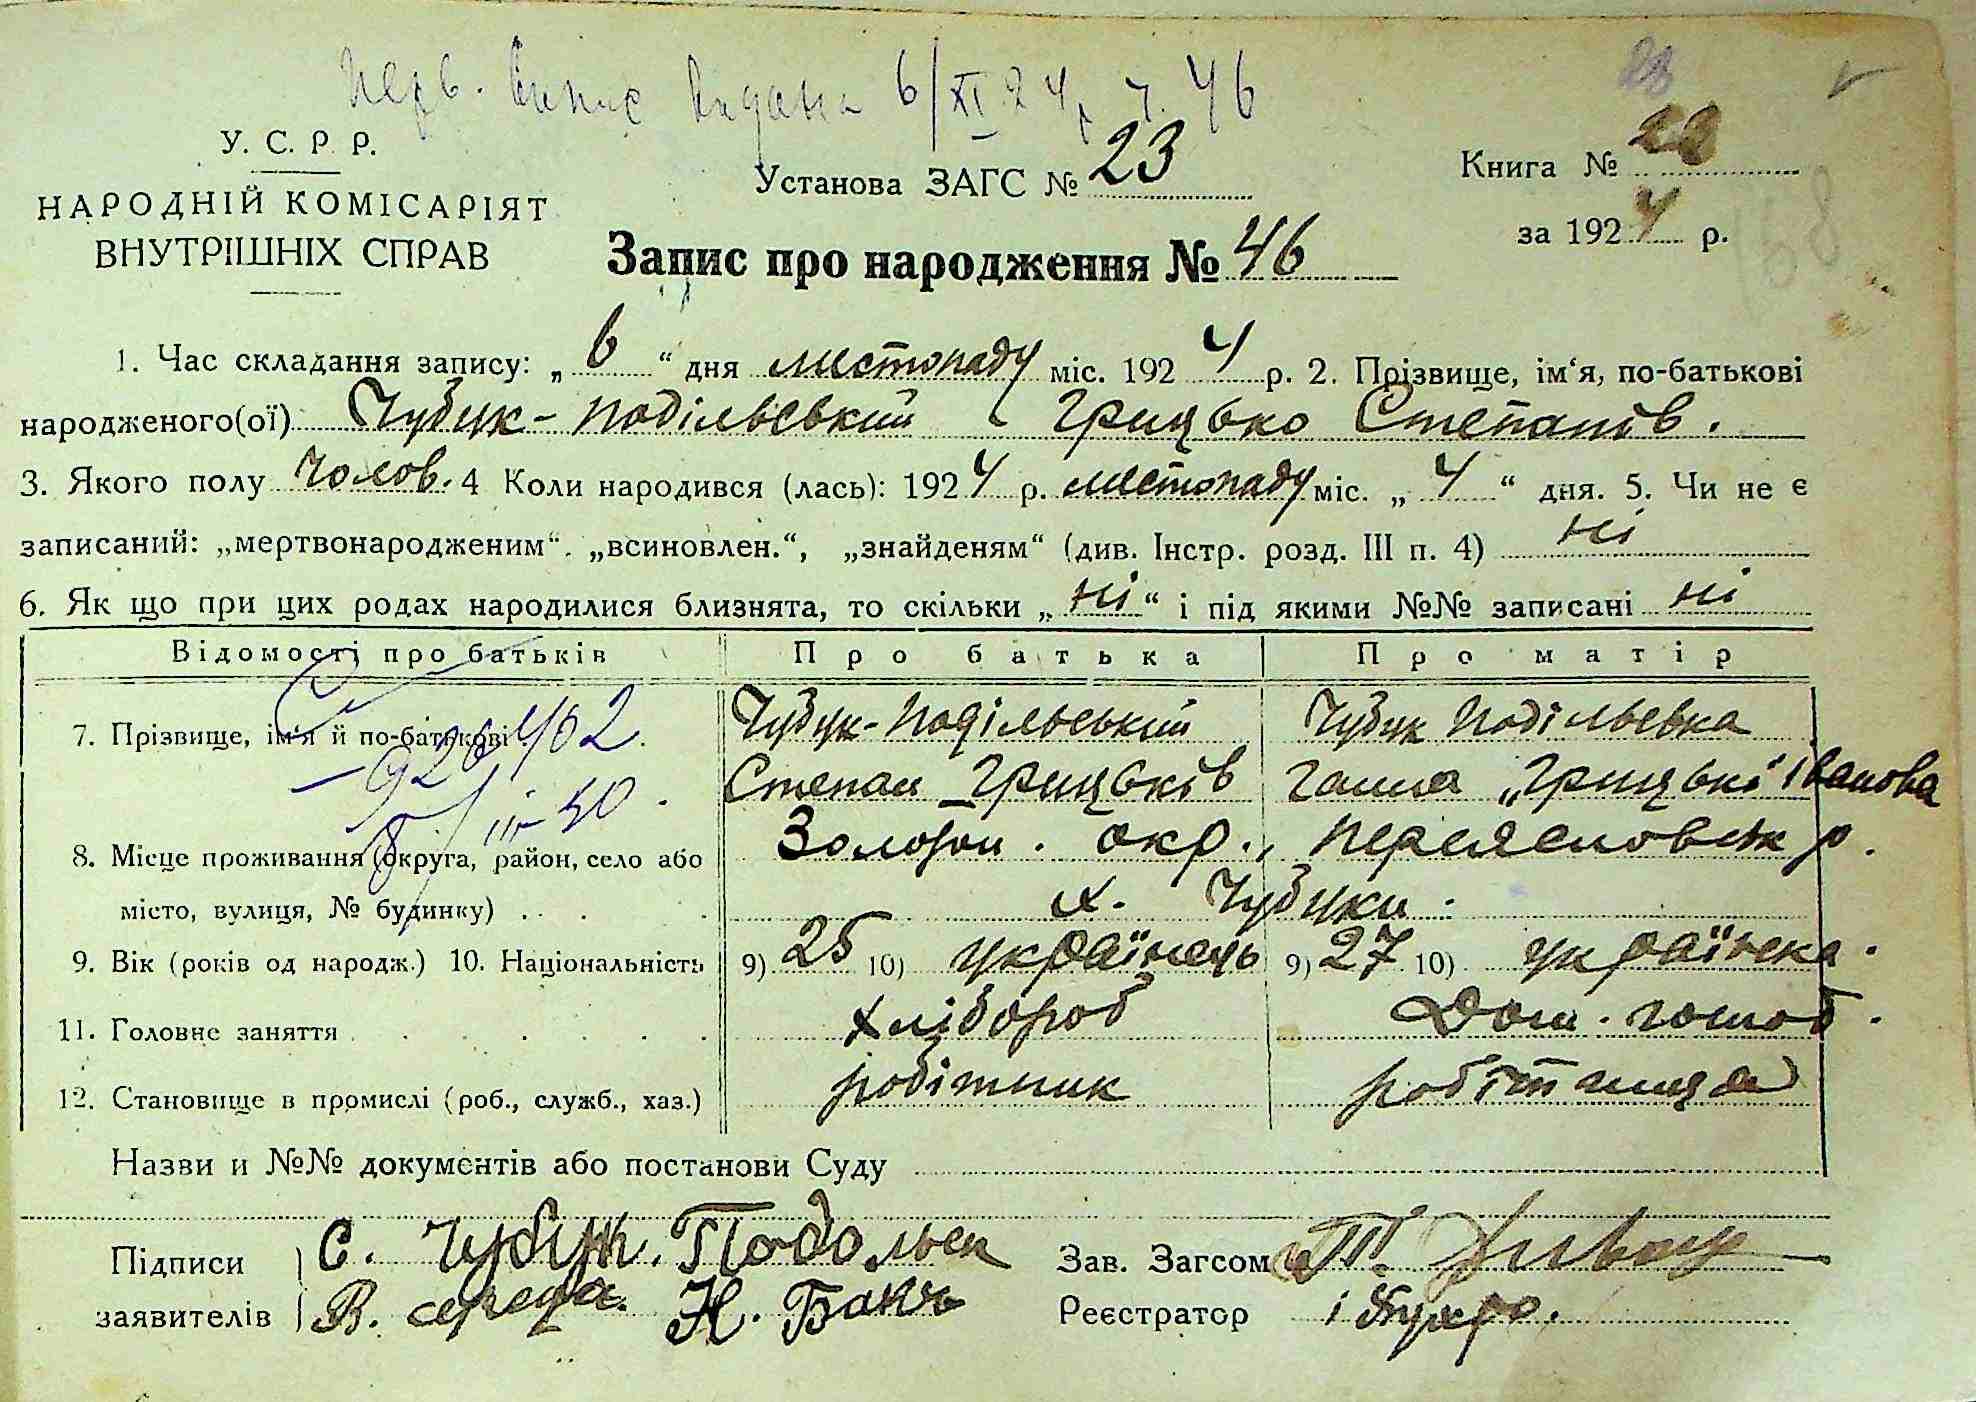 Перв. Випис видана 6/XI 24 р ч. 46
У. С. Р. Р.
НАРОДНІЙ КОМІСАРІЯТ
ВНУТРІШНІХ СПРАВ
Установа ЗАГС № 23
Книга № 22
за 1924 р.
Запис про народження № 46
1. Час складання запису: „ 6 “ дня листопаду міс. 1924 р. 2. Прізвище, ім‘я, по-батькові
народженого(ої) Чубук-Подільський Грицько Степанів.
3. Якого полу чолов. 4 Коли народився (лась): 1924 р. листопаду міс. „ 4 “ дня. 5. Чи не є
записаний: „мертвонародженим“. „всиновлен.“, „знайденям“ (див. Інстр. розд. III п. 4) ні
6. Як що при цих родах народилися близнята, то скільки „ ні “ і під якими №№ записані ні
Відомості про батьків Про батька Про матір
7. Прізвище, ім‘я й по-батькові Чубук-Подільський Чубук Подільська
Степан Грицьків Ганна „Грицькі“ Іванова
8. Місце проживання (округа, район, село або Золотон. окр., Переясловськ р.
місто, вулиця, № будинку) х. Чубуки.
9. Вік (років од народж.) 10. Національність 9) 25 10) українець 9) 27 10) українка.
11. Головне заняття хлібороб Дом. господ.
12. Становище в промислі (роб., служб., хаз.) робітник робітниця
Назви и №№ документів або постанови Суду
Підписи С. Чубук. Подольск Зав. Загсом
заявителів В. середа. Н. Бакъ Реєстратор